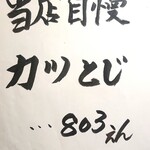 当店自慢
カツとじ
…803えん